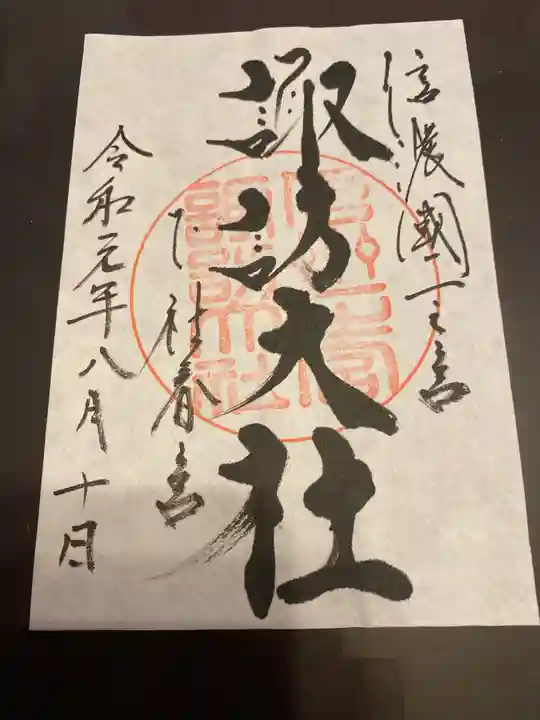 信濃國一之宮
諏訪大社
下社春宮
令和元年八月十日